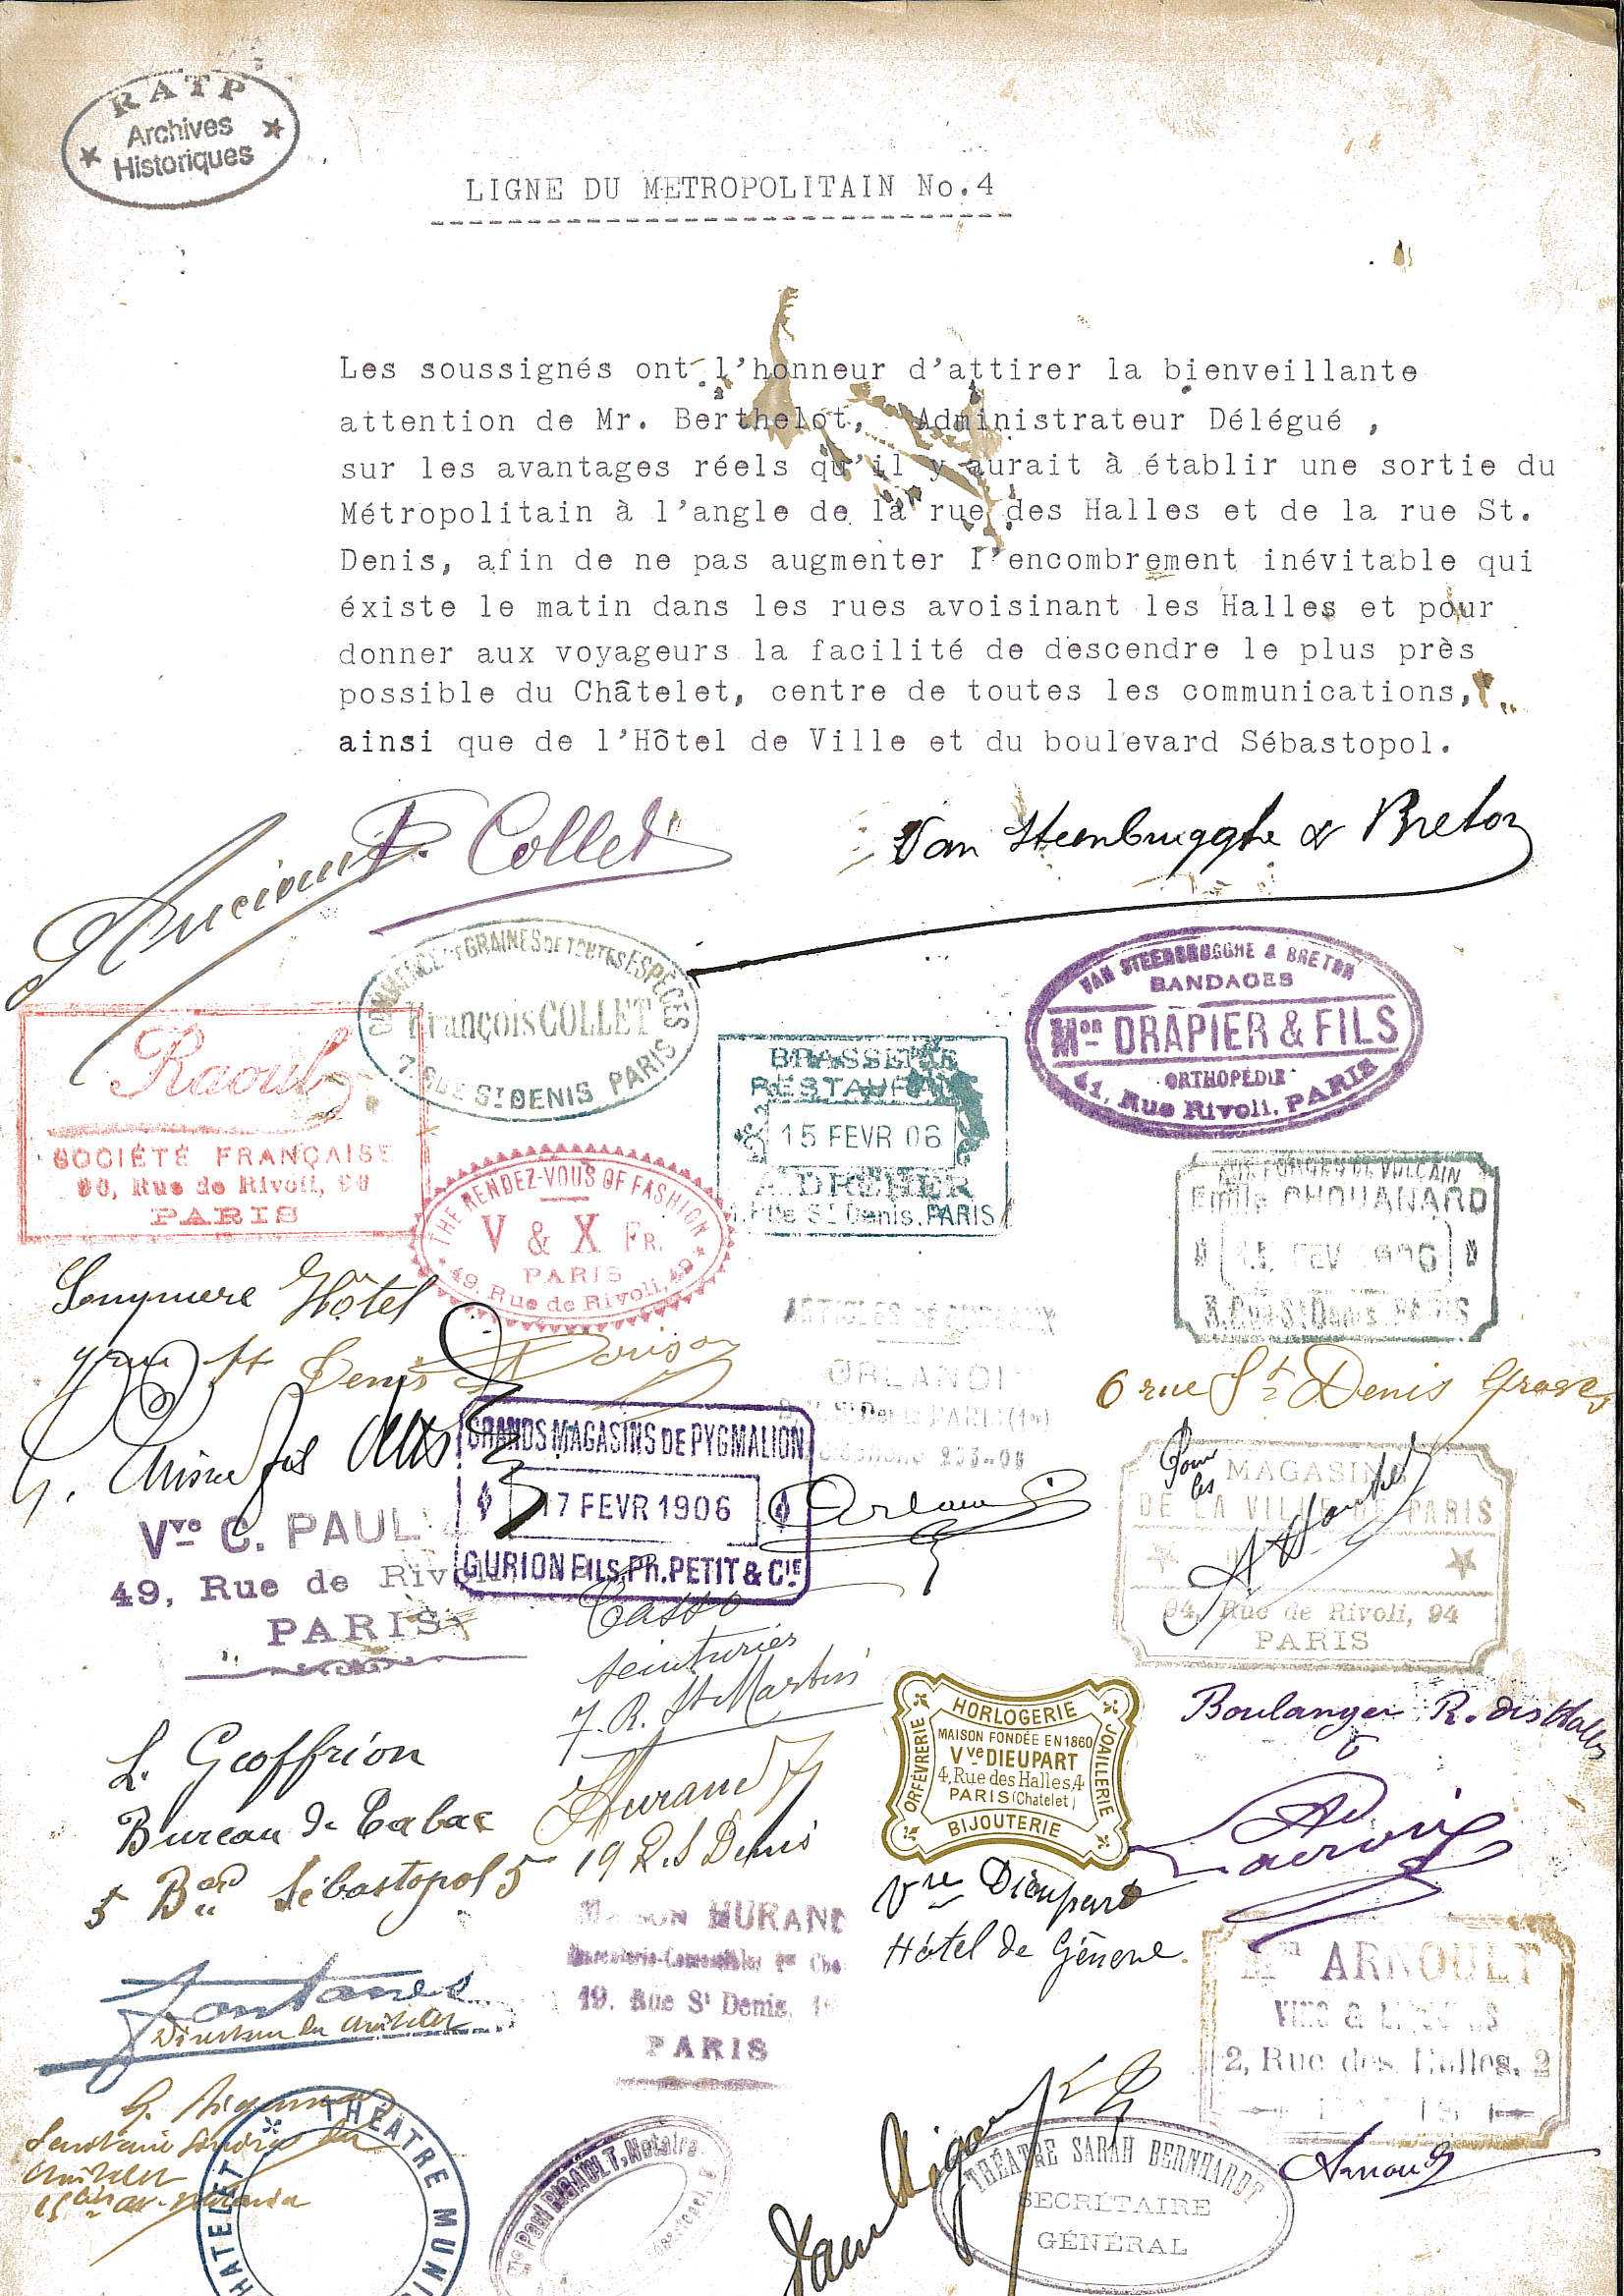 RATP
Archives
Historiques
LIGNE DU METROPOLITAIN No.4
Les soussignés ont l'honneur d'attirer la bienveillante
attention de Mr. Berthelot, Administrateur Délégué ,
sur les avantages réels qu'il y aurait à établir une sortie du
Métropolitain à l'angle de la rue des Halles et de la rue St.
Denis, afin de ne pas augmenter l'encombrement inévitable qui
éxiste le matin dans les rues avoisinant les Halles et pour
donner aux voyageurs la facilité de descendre le plus près
possible du Châtelet, centre de toutes les communications,
ainsi que de l'Hôtel de Ville et du boulevard Sébastopol.
F. Collet
Van Steenbrugghe & Breton
GRAINES DE TOUTES ESPÈCES
François COLLET
7, RUE St DENIS PARIS
VAN STEENBRUGGHE & BRETON
BANDAGES
Mon DRAPIER & FILS
ORTHOPÉDIE
41, Rue Rivoli, PARIS
Raoul
SOCIÉTÉ FRANÇAISE
90, Rue de Rivoli, 90
PARIS
BRASSERIE
RESTAURANT
15 FEVR 06
A. DREHER
1, Rue St Denis. PARIS
THE RENDEZ-VOUS OF FASHION
V & X FR.
PARIS
49, Rue de Rivoli, 49
AUX FORGES DE VULCAIN
Emile CHOUANARD
15 FEV 1906
3, Rue St Denis. PARIS
Hôtel
rue St Denis
ORLANDI
6 rue St Denis
GRANDS MAGASINS DE PYGMALION
17 FEVR 1906
GURION FILS, PH. PETIT & CIE
Orlandi
Vve C. PAUL
49, Rue de Rivoli
PARIS
Pour les
MAGASINS
DE LA VILLE DE PARIS
94, Rue de Rivoli, 94
PARIS
Casso
teinturier
7. R. St Martin
L. Geoffrion
Bureau de Tabac
5 Bard Sébastopol 5
HORLOGERIE
ORFÈVRERIE
JOAILLERIE
MAISON FONDÉE EN 1860
Vve DIEUPART
4, Rue des Halles, 4
PARIS (Chatelet)
BIJOUTERIE
Boulanger R. des Halles
6
Lacroix
Murand
19 R. S Denis
Vve Dieupart
Hôtel de Génève
MAISON MURAND
19. Rue St Denis. 19
PARIS
Fontanes
Directeur du Châtelet
Mon ARNOULT
VINS & LIQUEURS
2, Rue des Halles, 2
PARIS
THÉATRE MUNI
CHATELET
Me Paul RIGAULT, Notaire
THÉATRE SARAH BERNHARDT
SECRÉTAIRE
GÉNÉRAL